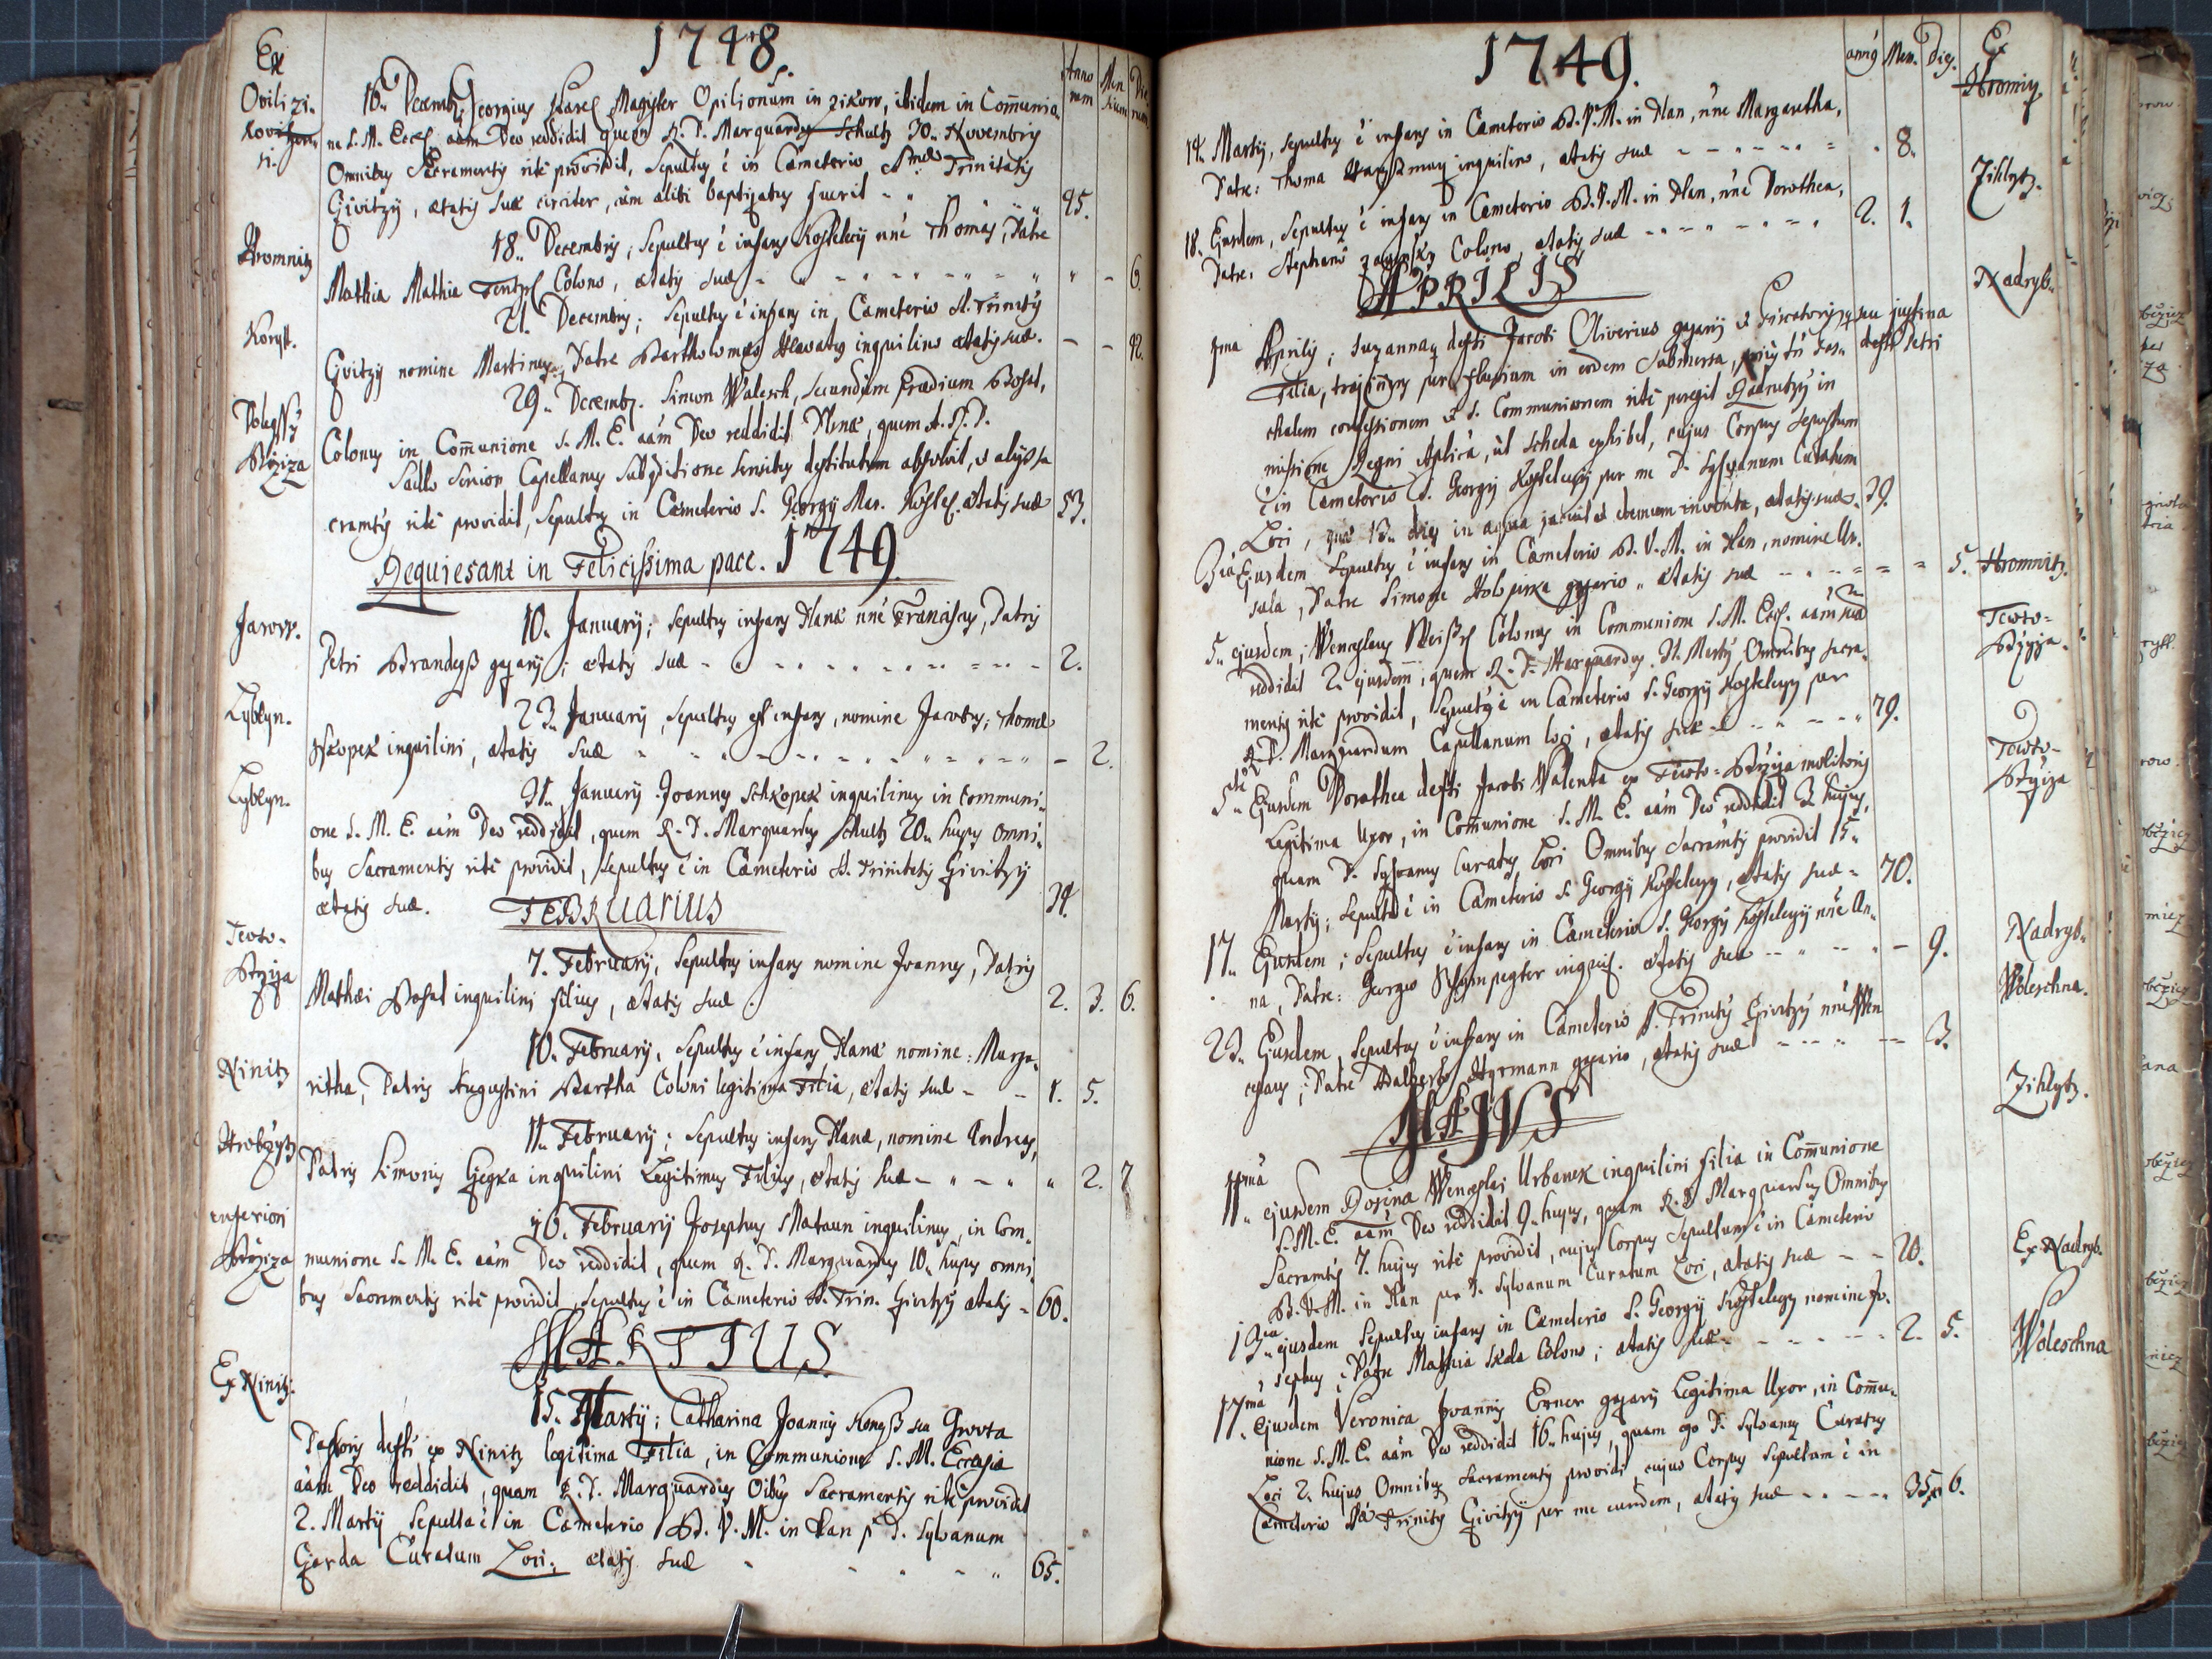 1748.
Ex
Anno rum
Men sium
Die rum
Ovilizi.
16. Decembr. Georgius Magister Opilionum in Zikow, ibidem in Com̄unio
ne S. M. Eccl. aām Deo reddidit quem R. P. Marquardus Schultz 30. Novembris
Omnibus Sacramentis rite providit, Sepultus ē in Cæmeterio Smæ Trinitatis
Givitzÿ, ætatis suæ circiter, cum alibi baptizatus fuerit
Hromnitz
18. Decembris; Sepultus ē infans Kostelecÿ nn̄e Thomas, Patre
Mathia Mathia Colono, ætatis suæ - 6.
Koryt.
21. Decembris; Sepultus ē infans in Cæmeterio S. Trinitÿ
Givitzÿ nomine Martinus, Patre Bartholomæo Hlavaty inquilino ætatis suæ. - -
Dolegssÿ
Brziza
29. Decemb. Simon Walesch, secundum Prædium Bohsl,
Colonus in Com̄unione S. M. E. aām Deo reddidit Plznæ, quem A. R. P.
Senior Capellanus sensibus destitutum absolvit, et alÿs Sa
cramtis rite providit, Sepultus in Cæmeterio S. Georgÿ Mar. Kostel. ætatis suæ 53.
Requiesant in Felicissima pace. 1749.
Jarow.
10. Januarÿ; Sepultus infans Planæ nn̄e Franciscus, Patris
Petri Brandeyss gazarÿ; ætatis suæ - 2.
Lyblyn.
23. Januarÿ, Sepultus est infans, nomine Jacobus; Thomæ
Skopek inquilini, ætatis suæ - 2.
Lyblyn.
31. Januarÿ Joannes Schkopek inquilinus in Communi-
one S. M. E. aām Deo reddidit, quem R. P. Marquardus Schultz 20. hujus omni-
bus Sacramentis rite providit, Sepultus ē in Cæmeterio S. Trinitatis Givitzÿ
ætatis suæ. 34.
FEBRUARIUS
Tewto-
Brzija
7. Februarÿ, Sepultus infans nomine Joannes, Patris
Mathæi Bohsl inquilini filius, ætatis suæ. 2. 3. 6.
Ninitz
10. Februarÿ, Sepultus ē infans Planæ nomine: Marga-
ritha, Patris Augustini Bartha Coloni legitima Filia, ætatis suæ - - 1. 5.
Hrobzytz
11. Februarÿ; Sepultus infans Planæ, nomine Andreas,
Patris Simonis Gegka inquilini Legitimus Filius, ætatis suæ - 2. 7
inferiori
Brziza
16. Februarÿ Josephus Mataun inquilinus, in Com-
munione S. M. E. aām Deo reddidit, quem R. P. Marquardus 10. hujus omni-
bus Sacramentis rite providit, Sepultus ē in Cæmeterio S. Trin. Givitzÿ ætatis - 60.
MARTIUS
Ex Ninitz:
15. Martÿ; Catharina Joannis seu Gwota
Pastoris defti ex Ninitz legitima Filia, in Communione S. M. Ecclesiæ
aām Deo reddidit, quam R. P. Marquardus Oībus Sacramentis rite providit
2. Martÿ Sepulta ē in Cæmeterio B. V. M. in Plan p P. Sylvanum
Gerda Curatum Loci: ætatis suæ 65.
1749.
annis Men. dies. Ex
14. Martÿ, sepultus ē infans in Cæmeterio B. V. M. in Plan, nn̄e Margaretha, Hromiz
Patre: Thoma inquilino, ætatis suæ - 8.
18. Ejusdem, Sepultus ē infans in Cæmeterio B. V. M. in Plan, nn̄e Dorothea, Zihlytz.
Patre: Stephano Colono, ætatis suæ - 2. 1.
APRILIS
Nadryb.
1ma Aprilis; Suzanna defti Jacobi Oliverius gazarÿ et Piscatoris seu justina defti Petri
Filia, per fluvium in eodem submersa, Pas-
chalem confessionem et S. Communionem rite peregit
missione Regni Aplica, ut scheda exhibet, cujus Corpus sepultum
ē in Cæmeterio S. Georgÿ Kostelecÿ per me P. Sylvanum Curatum
Loci, quæ 13. dies in aqua jacuit et demum inventa, ætatis suæ. 39.
3ia Ejusdem Sepultus ē infans in Cæmeterio B. V. M. in Plan, nomine Ur-
sula, Patre Simone Holopirka gazario, ætatis suæ - 5. Hromnitz.
5. ejusdem, Wenceslaus Colonus in Communione S. M. Eccl. aām suā Tewto=
Brzyja.
reddidit 2. ejusdem, quem R. P. Marquardus 31. Martÿ Omnibus Sacra-
mentis rite providit, Sepultus ē in Cæmeterio S. Georgÿ Kostelecÿ per
R. P. Marquardum Capellanum loci, ætatis suæ - 79.
5. Ejusdem Dorothea defti Jacobi Walenta ex Tewto=Brzyja molitoris Tewto-
Brzyza
Legitima Uxor, in Com̄unione S. M. E. aām Deo reddidit 3 hujus,
quam P. Sylvanus Curatus Loci Omnibus Sacramtis providit 15.
Martÿ; Sepulta ē in Cæmeterio S. Georgÿ Kostelecÿ, ætatis suæ - 70.
17. Ejusdem; Sepultus ē infans in Cæmeterio S. Georgÿ Kostelecÿ nn̄e An- Nadryb.
na, Patre: Georgio inquil. ætatis suæ - 9.
Woleschna.
23. Ejusdem, Sepultus ē infans in Cæmeterio S. Trinitÿ Givitzÿ nn̄e Wen
ceslaus; Patre Adalberto Hyrmann gazario, ætatis suæ - 3.
MAJUS
Zihlytz.
11ma ejusdem Rosina Wenceslai Urbanek inquilini filia in Com̄unione
S. M. E. aām Deo reddidit 9. hujus, quam R. P. Marquardus Omnibus
Sacramtis 7. hujus rite providit, cujus Corpus Sepultum ē in Cæmeterio
B. V. M. in Plan per P. Sylvanum Curatum Loci, ætatis suæ - - 20.
Ex Nadryb.
13ia ejusdem Sepultus infans in Cæmeterio S. Georgÿ Kostelecÿ nomine Jo-
sephus, Patre Mathia Skala Colono; ætatis suæ - 2. 5.
Woleschna
17ma Ejusdem Veronica Joannis Exner gazarÿ Legitima Uxor, in Com̄u-
nione S. M. E. aām Deo reddidit 16. hujus, quam ego P. Sylvanus Curatus
Loci 2. hujus Omnibus Sacramentis providi, cujus Corpus Sepultum ē in
Cæmeterio Stæ Trinitÿ Givitzÿ per me eundem, ætatis suæ - 35. 6.